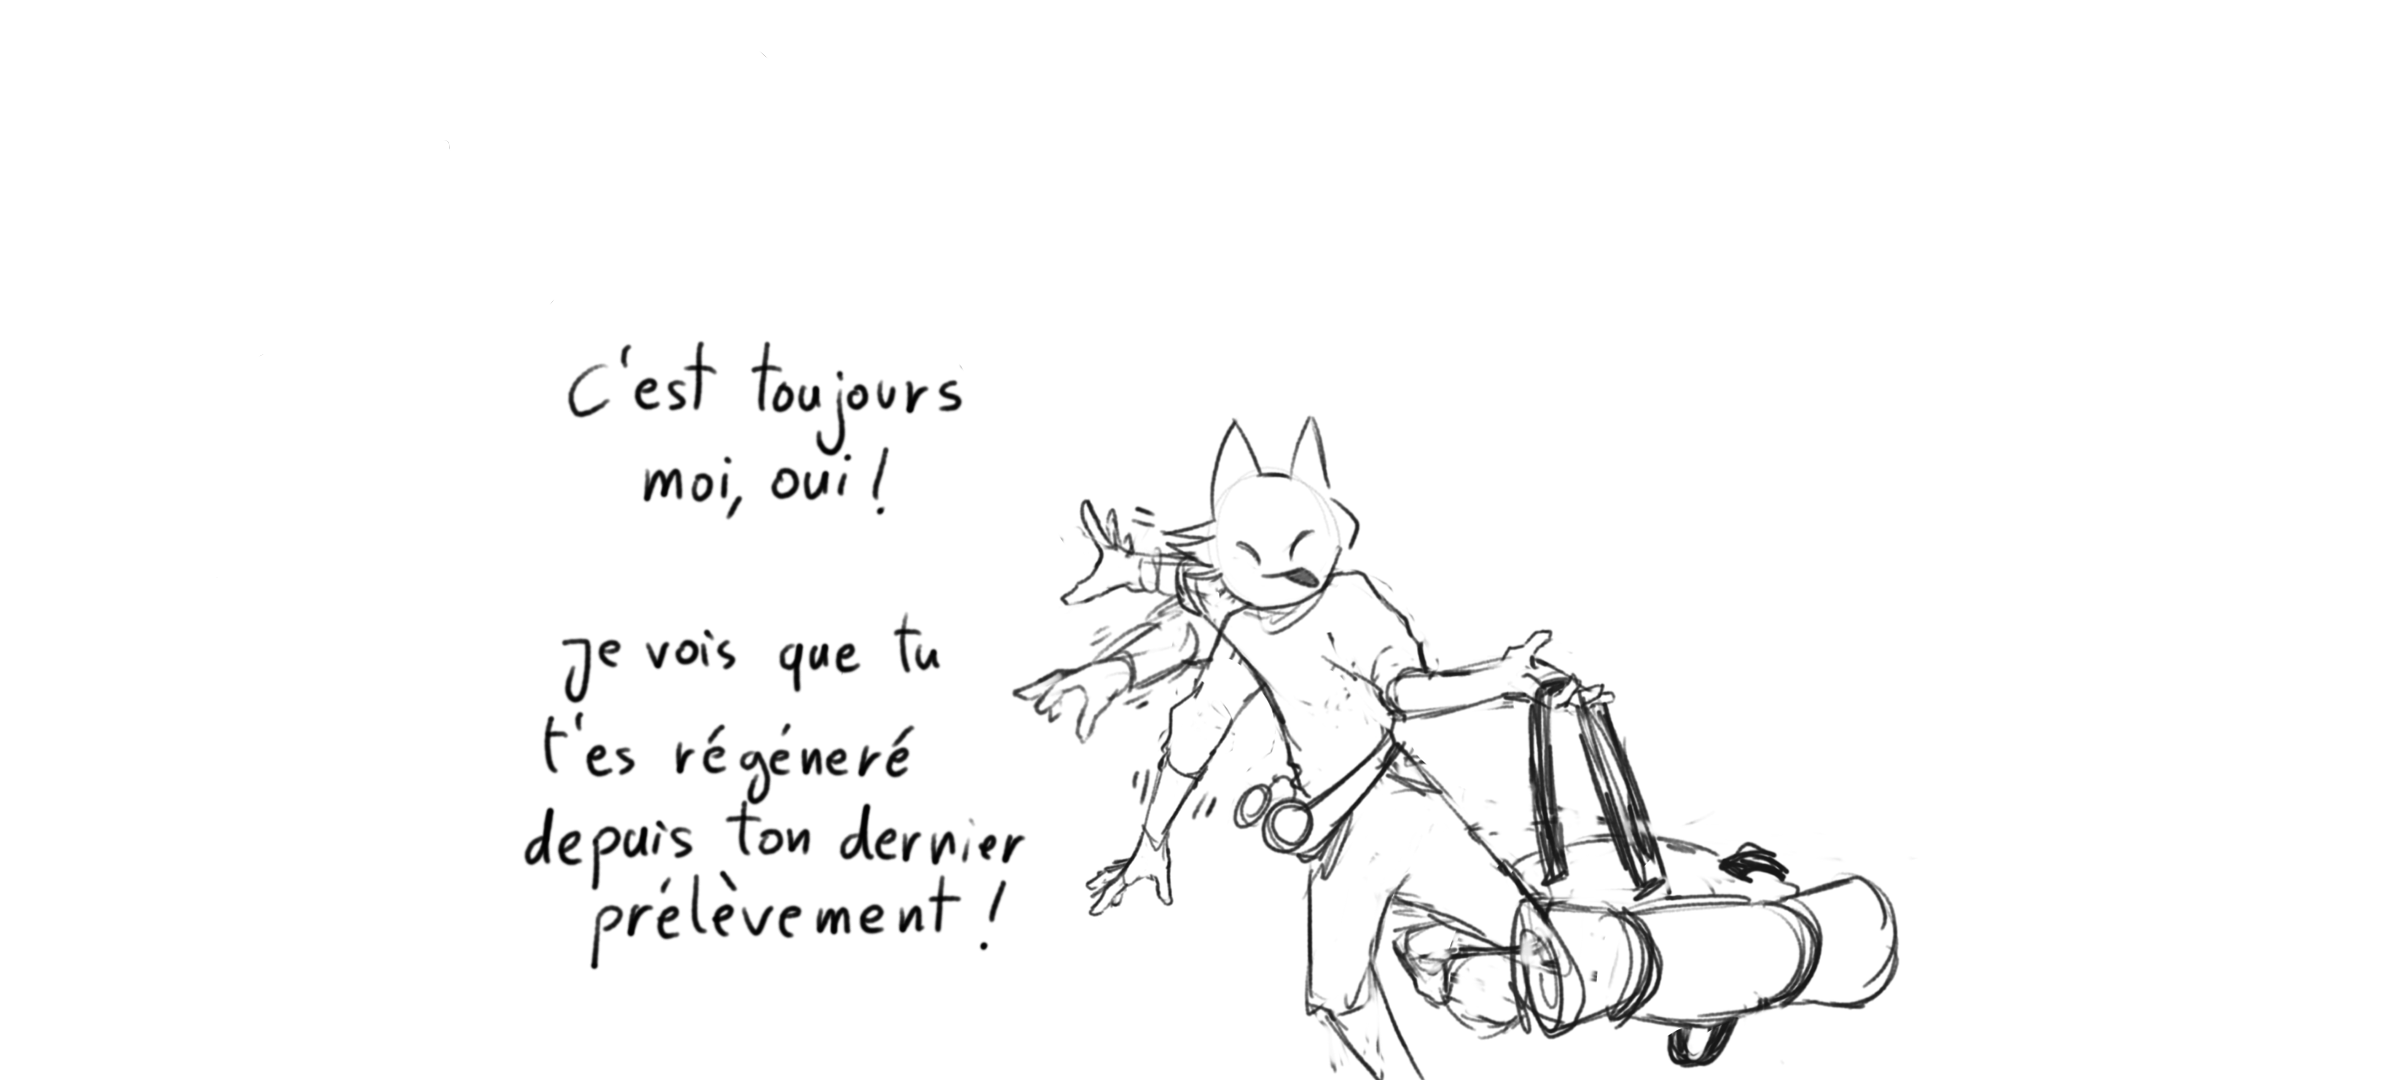 C'est toujours
moi, oui !
Je vois que tu
t'es régéneré
depuis ton dernier
prélèvement !